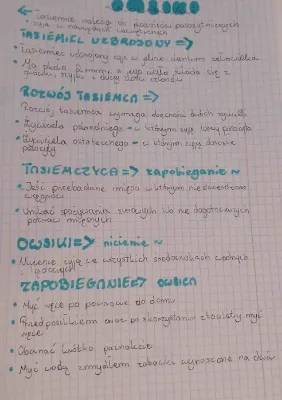 OWSIKI
← tasiemce należą do płazińców pasożytniczych
• żyją w narządach wewnętrznych
TASIEMIEC UZBROJONY =>
• Tasiemiec uzbrojony żyje w jelicie cienkim człowieka
• Ma płaską
główki, szyjki i dużej ilości członów
ROZWÓJ TASIEMCA =>
Rozwój tasiemca wymaga obecności dwóch żywicieli
• Żywiciela pośredniego - w którym żyją larwy pasożyta
• Żywiciela ostatecznego - w którym żyją dorosłe
pasożyty
TASIEMCZYCA => zapobieganie ~
• Jeść przebadane mięso w którym nie stwierdzono
wągrów
• Unikać spożywania surowych lub nie dogotowanych
potraw mięsnych
OWSIKI => nicienie ~
• Nicienie żyją we wszystkich środowiskach wodnych
ZAPOBIEGANIE => owsica
• Myć ręce po powrocie do domu
• Przed posiłkiem oraz po skorzystaniu z toalety myć
ręce
• Obcinać krótko paznokcie
• Myć wodą z mydłem zabawki wynoszone na dwór